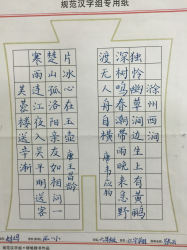 规范汉字组专用纸
滁州西涧
独怜幽草涧边生上有黄鹂
深树鸣春潮带雨晚来急野
渡无人舟自横 唐韦应物
芙蓉楼送辛渐
寒雨连江夜入吴平明送客
楚山孤洛阳亲友如相问一
片冰心在玉壶